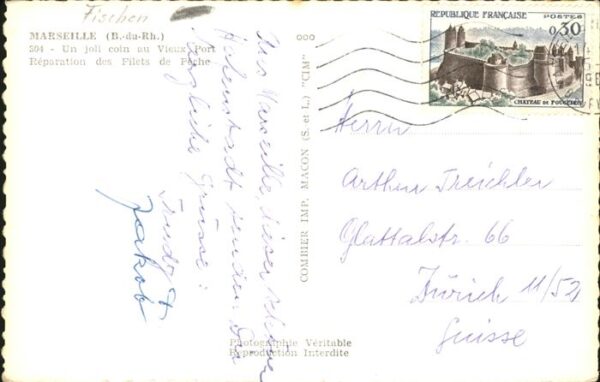 Fischen
MARSEILLE (B.-du-Rh.)
304 - Un joli coin au Vieux Port
Réparation des Filets de Pêche
Aus Marseille, dieser schönen
Hafenstadt senden Dir
herzliche Grüsse:
Trudy +
Jakob
COMBIER IMP. MACON (S. et L.) "CIM"
Photographie Véritable
Reproduction Interdite
RÉPUBLIQUE FRANÇAISE POSTES
0,30
CHATEAU DE FOUGÈRES
Herrn
Arthur Treichler
Glattalstr. 66
Zürich 11/52
Suisse